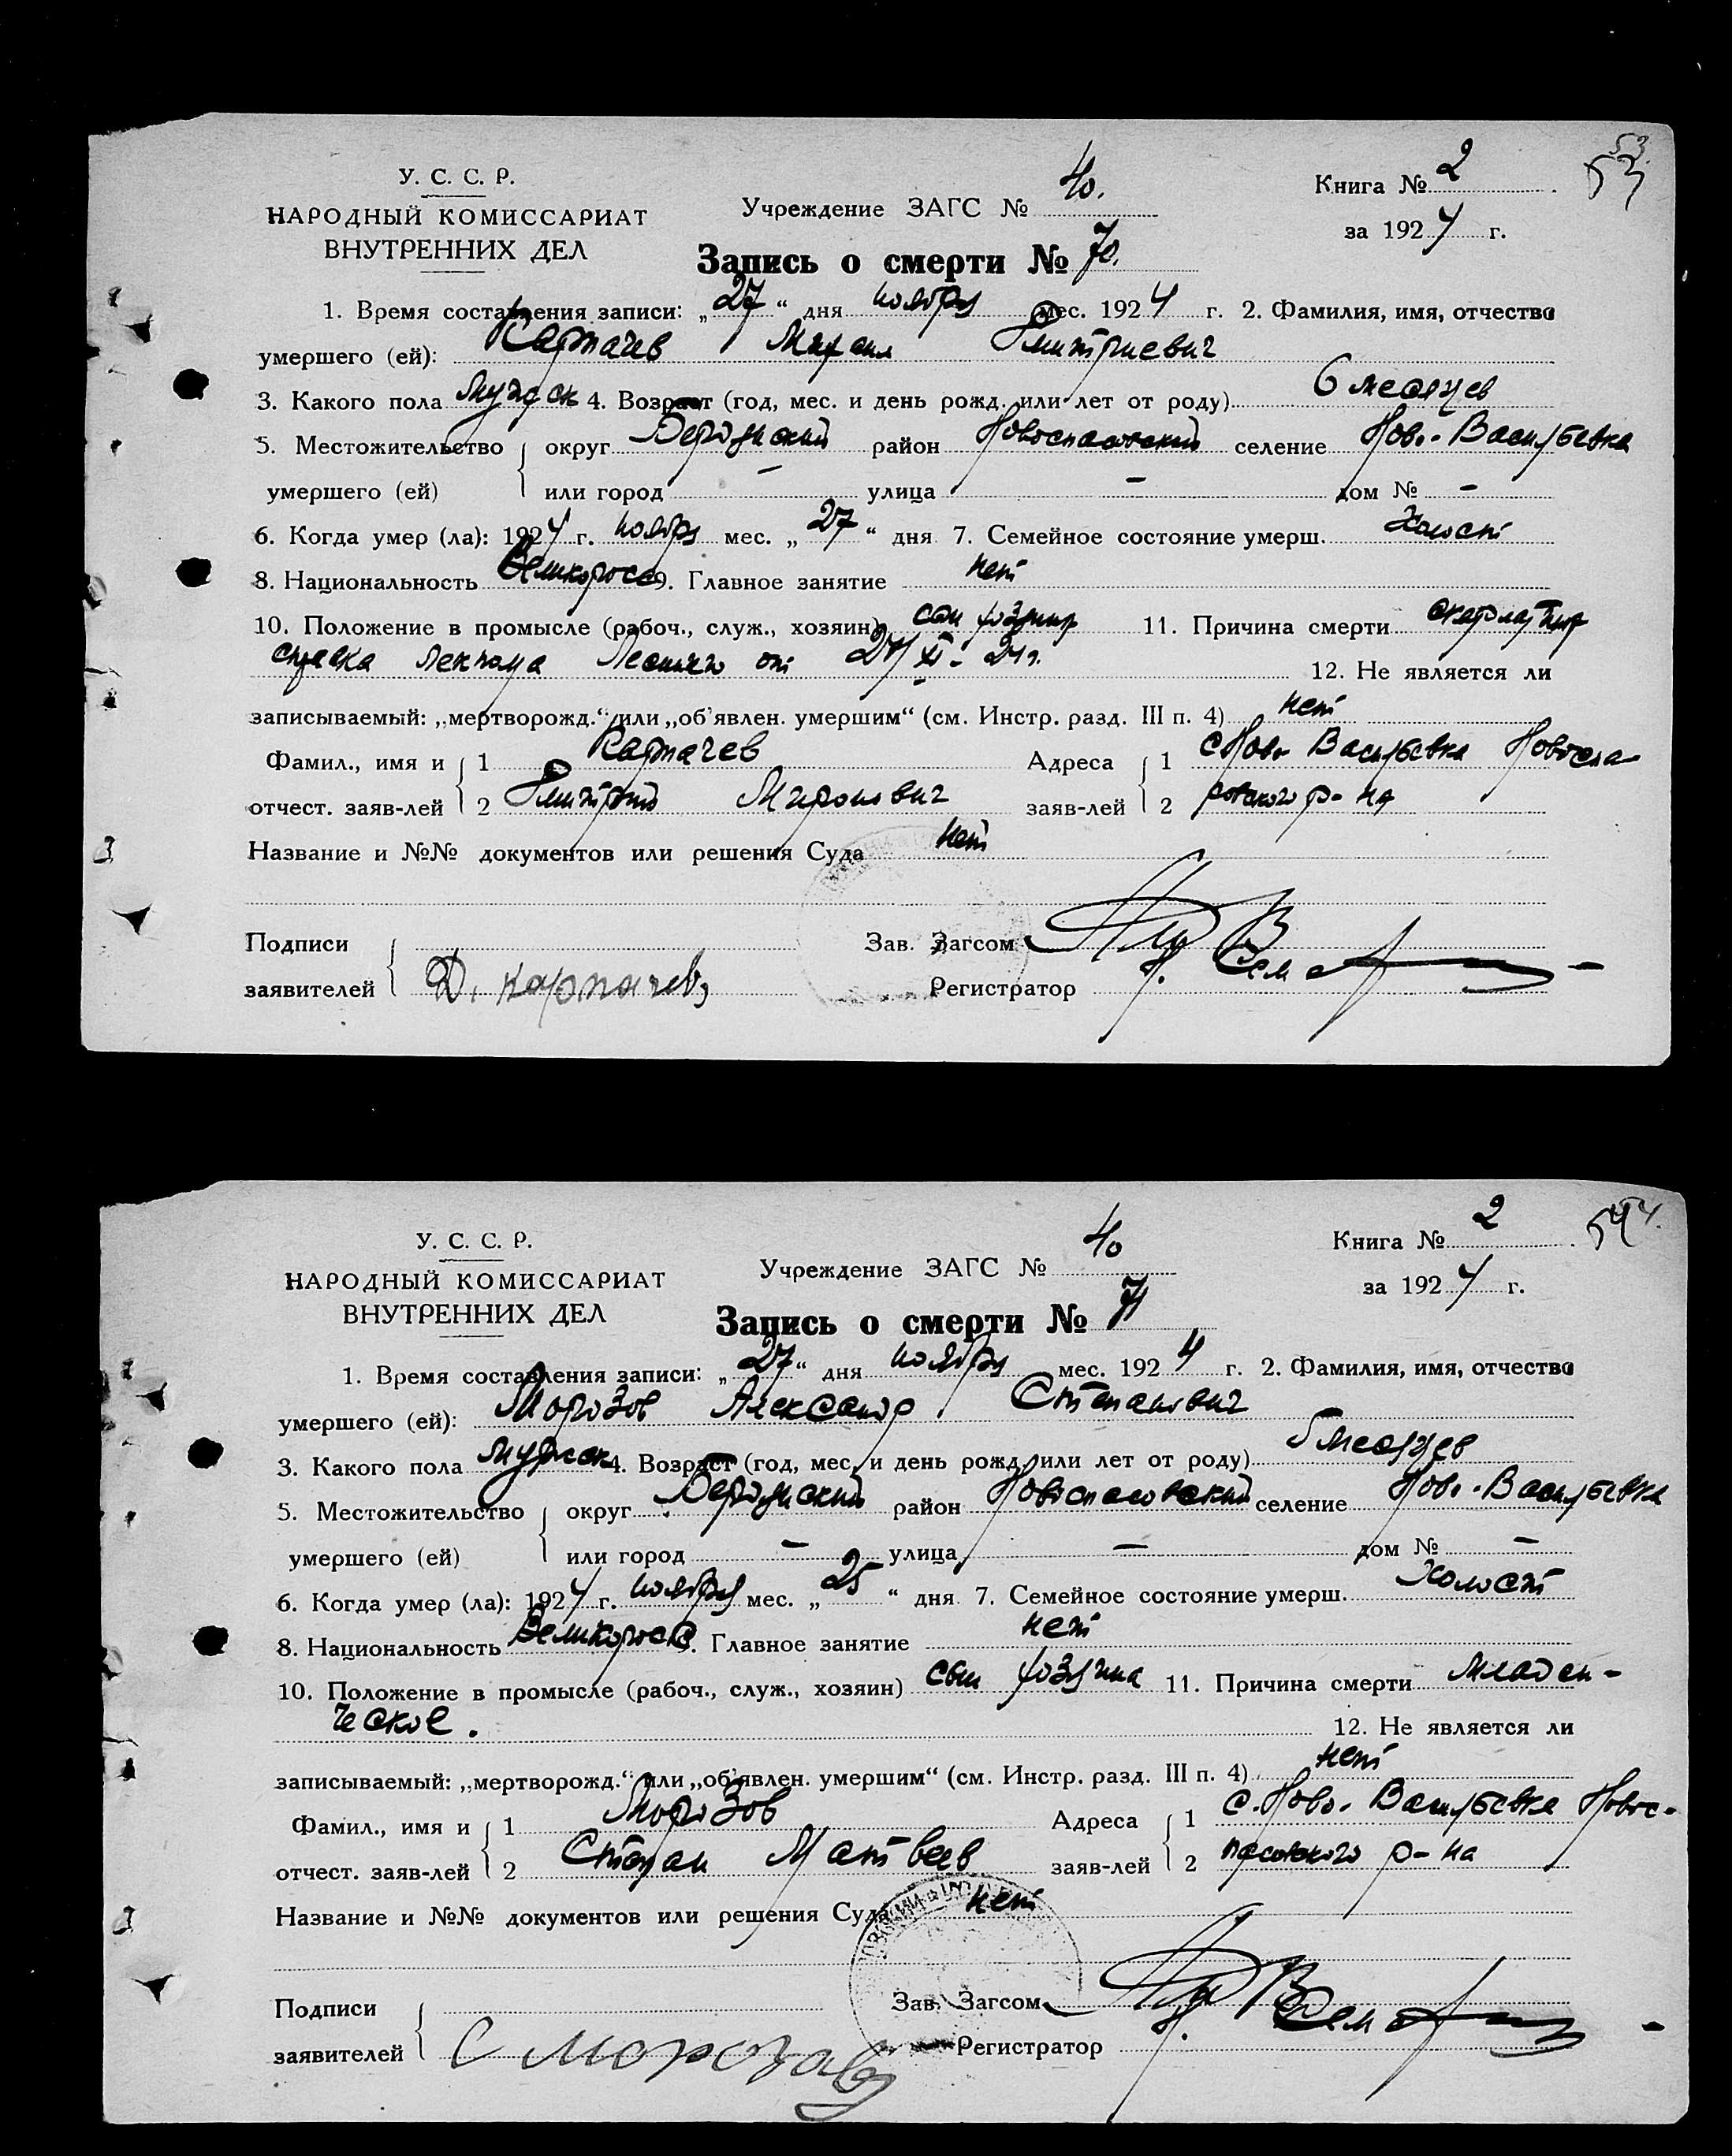 53.
53
У. С. С. Р.
НАРОДНЫЙ КОМИССАРИАТ
ВНУТРЕННИХ ДЕЛ
Учреждение ЗАГС № 40.
Книга № 2
за 1924 г.
Запись о смерти № 70.
1. Время составления записи: „27“ дня ноября мес. 1924 г. 2. Фамилия, имя, отчество
умершего (ей): Карпачев Михаил Дмитриевич
3. Какого пола мужск 4. Возраст (год, мес. и день рожд. или лет от роду) 6 месяцев
5. Местожительство округ Бердянский район Новоспасовский селение Ново-Васильевка
умершего (ей) или город — улица — дом № —
6. Когда умер (ла): 1924 г. ноября мес. „27“ дня 7. Семейное состояние умерш. Холост
8. Национальность Великоросс 9. Главное занятие нет
10. Положение в промысле (рабоч., служ., хозяин) сын 11. Причина смерти
справка лекпома от 27/XI-24г. 12. Не является ли
записываемый: „мертворожд.“ или „об’явлен. умершим“ (см. Инстр. разд. III п. 4) нет
Фамил., имя и 1 Карпачев Адреса 1 с Ново Васильевка Новоспа-
отчест. заяв-лей 2 Дмитрий Миронович заяв-лей 2 совского р-на
Название и №№ документов или решения Суда нет
Подписи Зав. Загсом
заявителей Д. Карпачев Регистратор
54.
54
У. С. С. Р.
НАРОДНЫЙ КОМИССАРИАТ
ВНУТРЕННИХ ДЕЛ
Учреждение ЗАГС № 40
Книга № 2
за 1924 г.
Запись о смерти № 71
1. Время составления записи: „27“ дня ноября мес. 1924 г. 2. Фамилия, имя, отчество
умершего (ей): Морозов Александр Степанович
3. Какого пола мужск 4. Возраст (год, мес. и день рожд. или лет от роду) 5 месяцев
5. Местожительство округ Бердянский район Новоспасовский селение Ново-Васильевка
умершего (ей) или город — улица — дом № —
6. Когда умер (ла): 1924 г. ноября мес. „25“ дня 7. Семейное состояние умерш. Холост
8. Национальность Великоросс 9. Главное занятие нет
10. Положение в промысле (рабоч., служ., хозяин) сын хозяина 11. Причина смерти младен-
ческое. 12. Не является ли
записываемый: „мертворожд.“ или „об’явлен. умершим“ (см. Инстр. разд. III п. 4) нет
Фамил., имя и 1 Морозов Адреса 1 с. Ново-Васильевка Новос-
отчест. заяв-лей 2 Степан Матвеев заяв-лей 2 пасовского р-на
Название и №№ документов или решения Суда нет
Подписи Зав. Загсом
заявителей С Морозав Регистратор